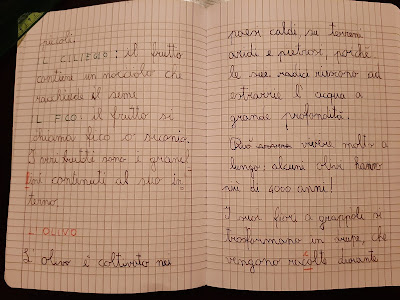 piccoli.
IL CILIEGIO: il frutto
contiene un nocciolo che
racchiede il seme
IL FICO: il frutto si
chiama fico o siconio.
I veri frutti sono i granel-
lini contenuti al suo in
terno.
L'OLIVO
L'olivo è coltivato nei
paesi caldi su terreni
aridi e pietrosi, perché
le sue radici riescono ad
estrarre l'acqua a
grande profondità.
Può vivere molto a
lungo: alcuni olivi hanno
più di 4000 anni!
I suoi fiori a grappoli si
trasformano in drupe, che
vengono racolte durante